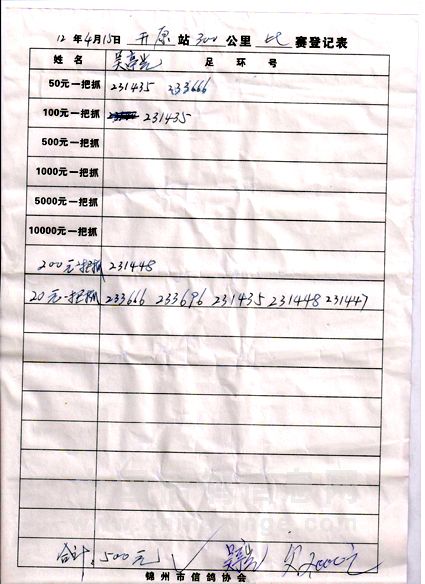 12 年 4 月 15 日 开原 站 300 公里 比 赛登记表
姓 名 足 环 号
50元一把抓 231435 233666
100元一把抓 231435
500元一把抓
1000元一把抓
5000元一把抓
10000元一把抓
200元一把抓 231448
20元一把抓 233666 233696 231435 231448 231447
合计: 500元 欠2000元
锦州市信鸽协会